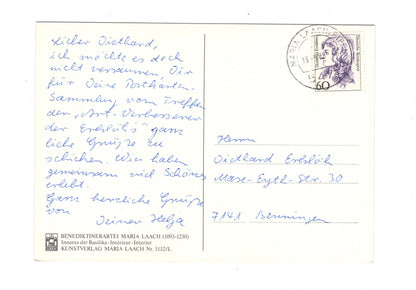 Lieber Diethard,
ich möchte es doch
nicht versäumen, Dir
für Deine Postkarten-
Sammlung vom Treffen
der „Art-Verbesserer
der Erbslöh's" ganz
liche Grüße zu
schicken. Wir haben
gemeinsam viel Schönes
erlebt.
Ganz herzliche Grüße
von
Deiner Helga
BENEDIKTINERABTEI MARIA LAACH (1093-1230)
Inneres der Basilika - Intérieur - Interior
KUNSTVERLAG MARIA LAACH Nr. 5132/L
MARIA LAACH
60
Herrn
Diethard Erbslöh
Max-Eyth-Str. 30
7141 Benningen